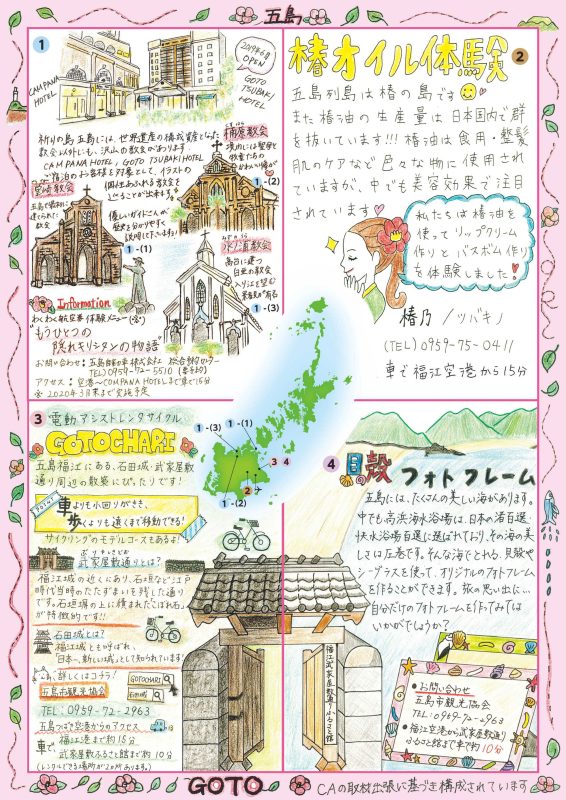 五島
1
CAMPANA
HOTEL
2019年6月
OPEN
GOTO
TSUBAKI
HOTEL
祈りの島 五島には、世界遺産の構成資産となった
教会以外にも、沢山の教会があります。
CAMPANA HOTEL, GOTO TSUBAKI HOTEL
ご宿泊のお客様を対象として、イラストの
個性あふれる教会を
優しいガイドさんが
歴史を分かりやすく
楠原教会
1-(2)
宮崎教会
五島で最初に
建てられた
教会
1-(1)
水ノ浦教会
高台に建つ
白亜の教会
1-(3)
Information
わくわく航空券 体験メニュー
"もうひとつの
隠れキリシタンの物語"
お問い合わせ:五島自動車株式会社 総合予約センター
TEL)0959-72-5510
アクセス:空港〜COMPANA HOTELまで車で15分
※2020年3月末まで実施予定
椿オイル体験
2
五島列島は椿の島です
また椿油の生産量は日本国内で群
を抜いています!!!椿油は食用・整髪
肌のケアなど色々な物に使用され
ていますが、中でも美容効果で注目
されています
私たちは椿油を
使ってリップクリーム
作りとバスボム作り
を体験しました!
椿乃/ツバキノ
(TEL) 0959-75-0411
車で福江空港から15分
1-(3)
1-(1)
3 4
2
1-(2)
3
電動アシストレンタサイクル
GOTOCHARI
五島福江にある、石田城・武家屋敷
通り周辺の散策にぴったりです!
POINT
車よりも小回りがきき、
歩くよりも遠くまで移動できる!
サイクリングのモデルコースもあるよ!
武家屋敷通りとは?
福江城の近くにあり、石垣など江戸
時代当時のたたずまいを残した通り
です。石垣塀の上に積まれたこぼれ石が
特徴的です!!
石田城とは?
福江城とも呼ばれ、
"日本一、新しい城"として知られています
詳しくはコチラ!
GOTOCHARI
石田城
五島市観光協会
TEL:0959-72-2963
五島つばき空港からのアクセス
車で
福江港まで約15分
武家屋敷ふるさと館まで約10分
(レンタルできる場所が2カ所あります。)
福江武家屋敷通りふるさと館
4
貝殻フォトフレーム
五島には、たくさんの美しい海があります。
中でも、高浜海水浴場は、日本の渚百選・
快水浴場百選に選ばれており、その海の美
しさは圧巻です。そんな海でとれる、貝殻や
シーグラスを使って、オリジナルのフォトフレーム
を作ることができます。旅の思い出に…
自分だけのフォトフレームを作ってみては
いかがでしょうか?
お問い合わせ
五島市観光協会
TEL:0959-72-2963
福江空港から武家屋敷通り
ふるさと館まで車で約10分
GOTO
CAの取材出張に基づき構成されています